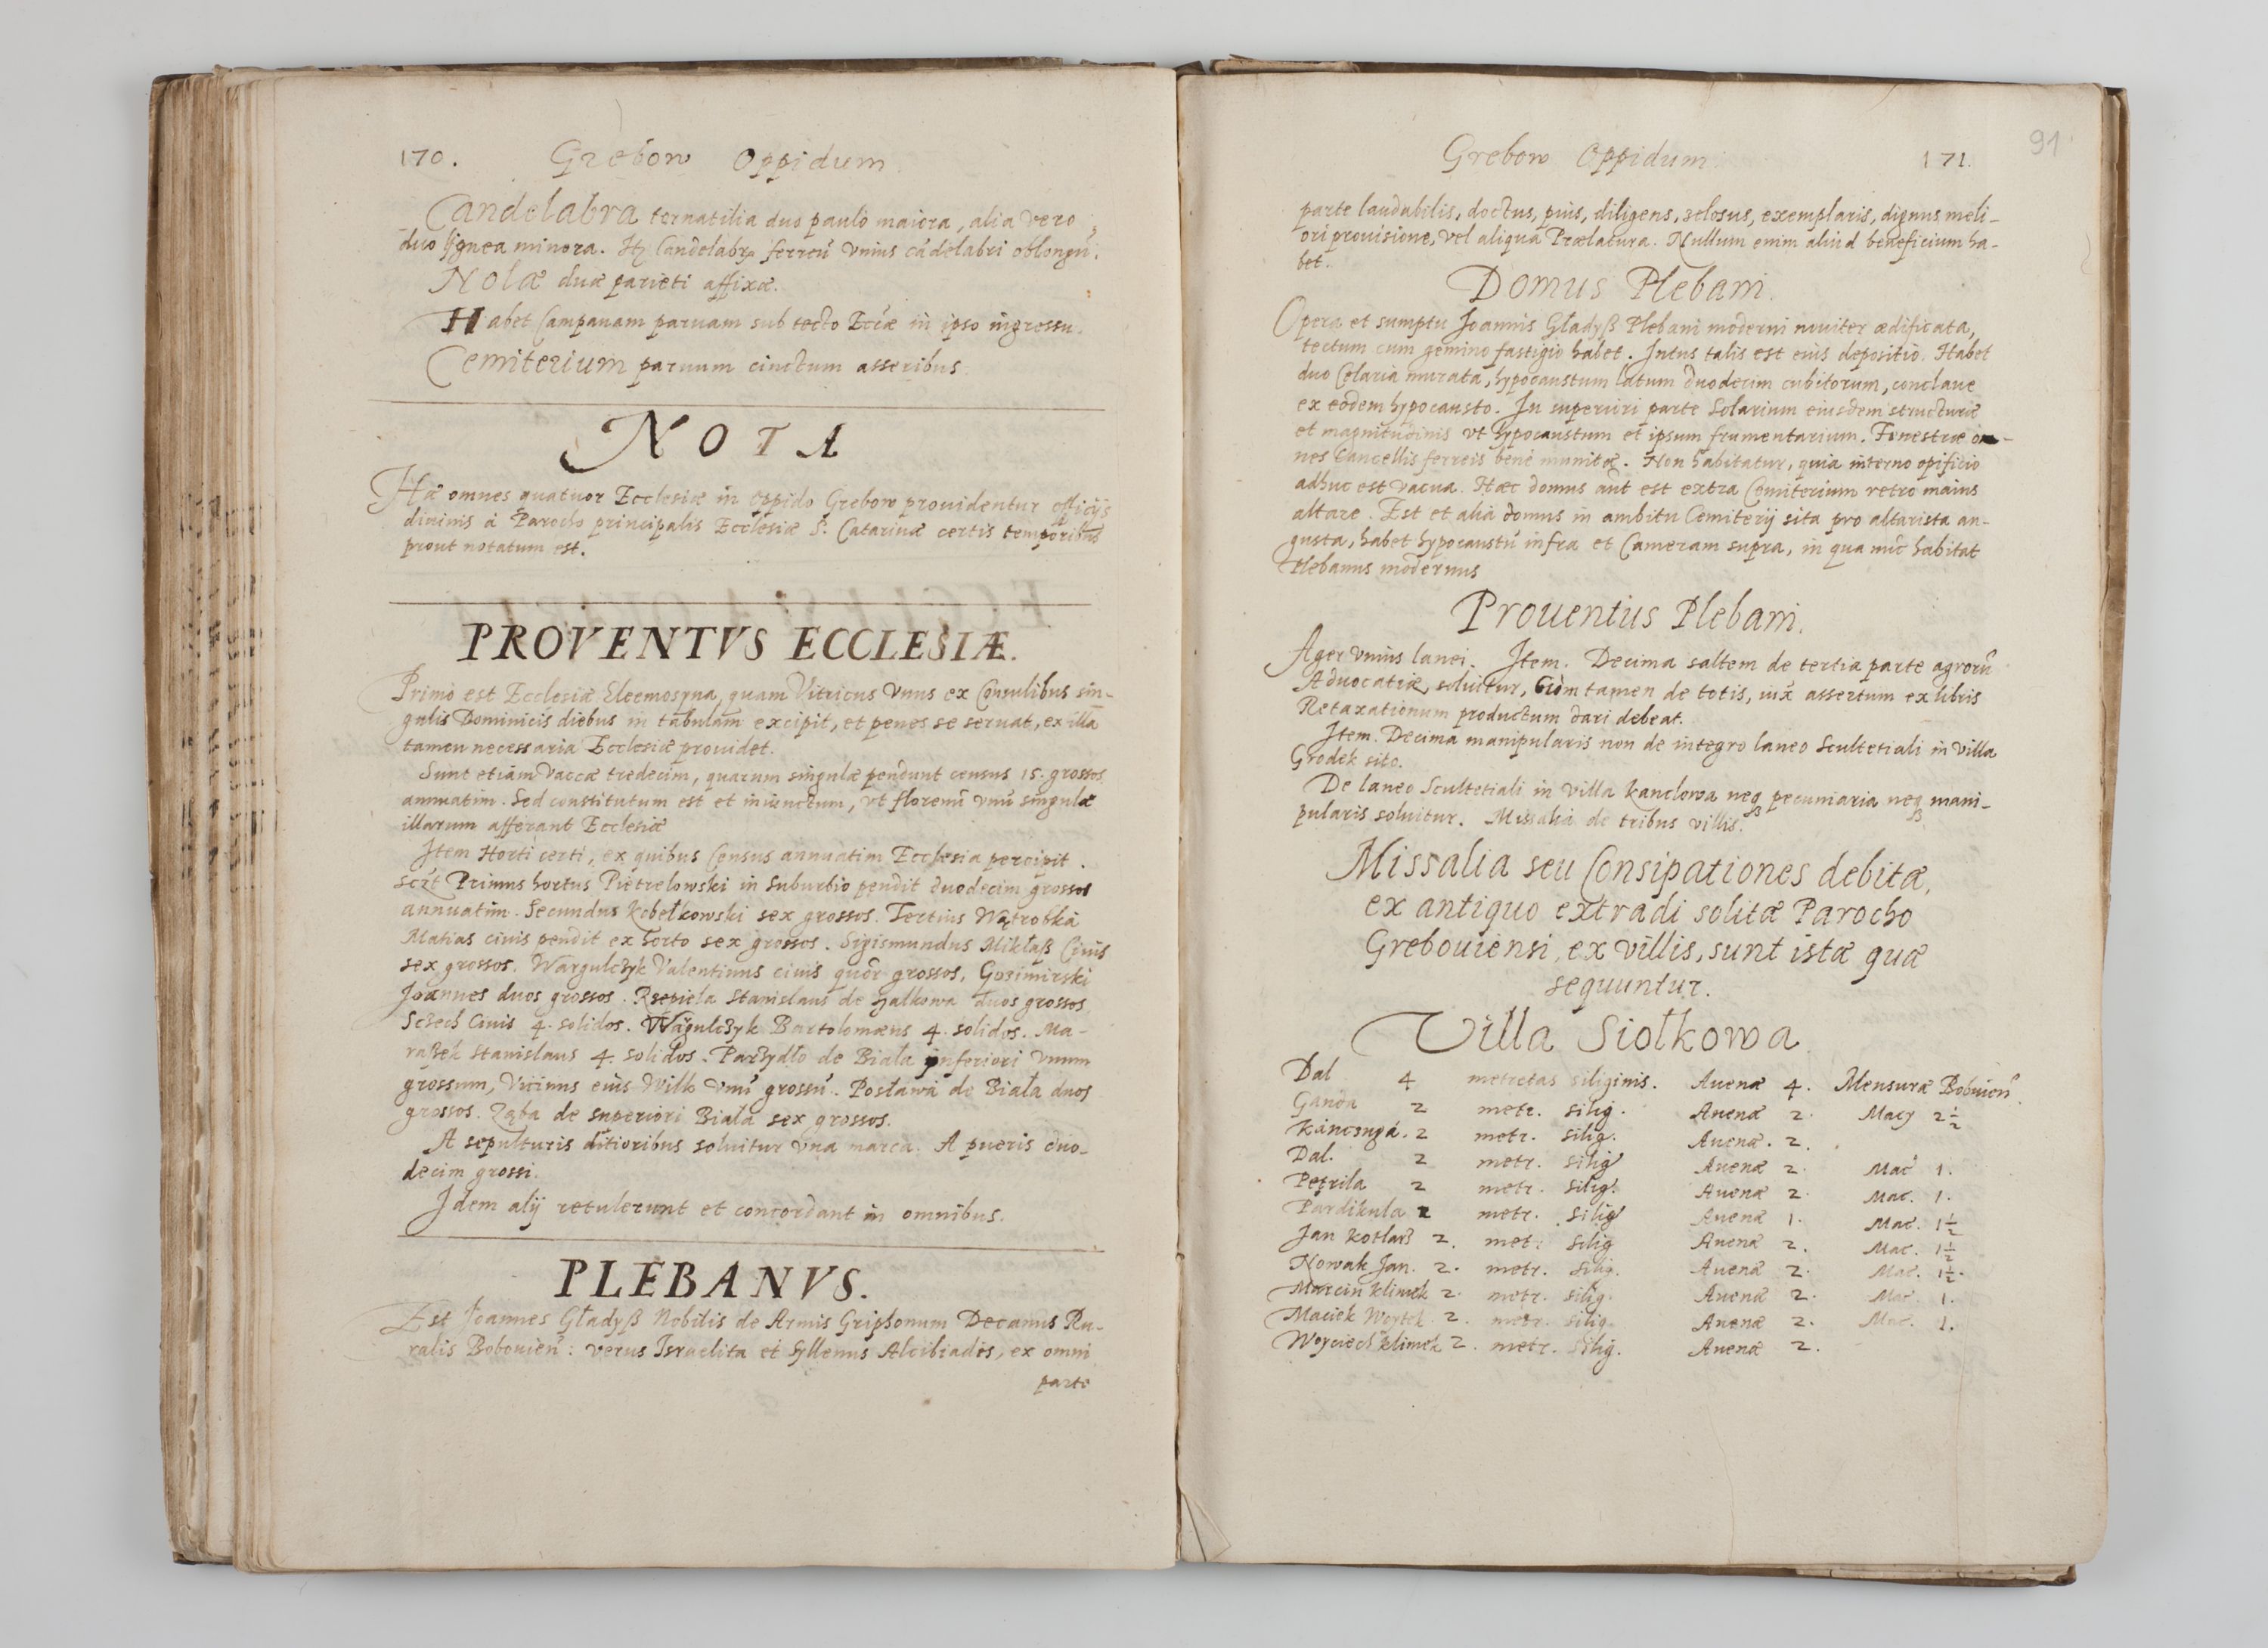 170. Grebow Oppidum.
Candelabra ternatilia duo paulò maiora, alia vero
duo lignea minora. Candelabrũ ferreũ vnius cãdelabri oblongũ.
Nolæ duæ parieti affixæ.
Habet Campanam paruam sub tecto Eccæ in ipso ingressu.
Cemiterium paruum cinctum asseribus.
NOTA
Hæ omnes quatuor Ecclesiæ in oppido Grebow prouidentur officijs
diuinis à Parocho principalis Ecclesiæ S. Catarinæ certis temporibus
prout notatum est.
PROVENTVS ECCLESIÆ.
Primò est Ecclesiæ Eleemosyna, quam Vitricus vnus ex Consulibus sin-
gulis Dominicis diebus in tabulam excipit, et penes se seruat, ex illa
tamen necessaria Ecclesiæ prouidet.
Sunt etiam Vaccæ tredecim, quarum singulæ pendunt census 15. grossos
annuatim. Sed constitutum est et iniunctum, vt florenũ vnũ singulæ
illarum afferant Ecclesiæ
Item Horti certi, ex quibus Census annuatim Ecclesia percipit.
sczt Primus hortus Pietrelowski in suburbio pendit duodecim grossos
annuatim. Secundus Kobelkowski sex grossos. Tertius Wątrobka
Matias ciuis pendit ex horto sex grossos. Sigismundus Miklaß Ciuis
sex grossos. Wargulczyk Valentinus ciuis quõr grossos. Gozimirski
Joannes duos grossos. Rzepiela Stanislaus de Halkowa duos grossos
Sczech Ciuis 4. solidos. Wargulczyk Bartolomæus 4. solidos. Ma-
raßek Stanislaus 4. solidos. Parzydło de Biała inferiori vnum
grossum, Vicinus eius Wilk vnũ grossũ. Postawa de Biała duos
grossos. Ząba de superiori Biała sex grossos.
A sepulturis ditioribus soluitur vna marca. A pueris duo-
decim grossi.
Idem alij retulerunt et concordant in omnibus.
PLEBANVS.
Est Joannes Gładyß Nobilis de Armis Griphonum Decanus Ru-
ralis Bobouieñ: verus Israelita et Syllenus Alcibiadis, ex omni
parte
Grebow Oppidum 171. 91
parte laudabilis, doctus, pius, diligens, zelosus, exemplaris, dignus meli-
ori prouisione, vel aliqua Prælatura. Nullum enim aliud beneficium ha-
bet.
Domus Plebani.
Opera et sumptu Joannis Gładyß Plebani moderni nouiter ædificata,
tectum cum gemino fastigio habet. Intus talis est eius depositio. Habet
duo Celaria murata, hypocaustum latum duodecim cubitorum, conclaue
ex eodem hypocausto. In superiori parte Solarium eiusdem structuræ
et magnitudinis vt hypocaustum et ipsum frumentarium. Fenestræ om-
nes Cancellis ferreis bene munitæ. Non habitatur, quia interno opificio
adhuc est vacua. Hæc domus aut est extra Cemiterium retro maius
altare. Est et alia domus in ambitu Cemiterij sita pro altarista an-
gusta, habet hypocaustũ infra et Cameram supra, in qua nũc habitat
Plebanus modernus
Prouentus Plebani.
Ager vnius lanei. Item. Decima saltem de tertia parte agrorũ
Aduocatiæ, soluitur, cùm tamen de totis, iux̃ assertum ex libris
Retaxationum productum dari debeat.
Item. Decima manipularis non de integro laneo Scultetiali in villa
Grodek sito.
De laneo Scultetiali in villa Kanclowa neq pecuniaria neq mani-
pularis soluitur. Missalia de tribus villis.
Missalia seu Consipationes debitæ,
ex antiquo extradi solitæ Parocho
Grebouiensi, ex villis, sunt istæ quæ
sequuntur.
Villa Siołkowa
Dal 4 metretas siliginis. Auenæ 4. Mensuræ Bobouieñ.
Ganda 2 metr. silig. Auenæ 2. Macy 2½
2 metr. silig. Auenæ. 2.
Dal. 2 metr. silig Auenæ 2. Mac 1.
2 metr. silig. Auenæ 2. Mac. 1.
Pardikula metr. silig Auenæ 1. Mac. 1½
Jan Kotlarz 2. metr. silig Auenæ 2. Mac. 1½
Nowak Jan. 2. metr. silig. Auenæ 2. Mac. 1½.
Marcin Klimek 2. metr. silig. Auenæ 2. Mac. 1.
Maciek Woytek 2. metr. silig. Auenæ 2. Mac. 1.
Woyciech klimek 2. metr. silig. Auenæ 2.